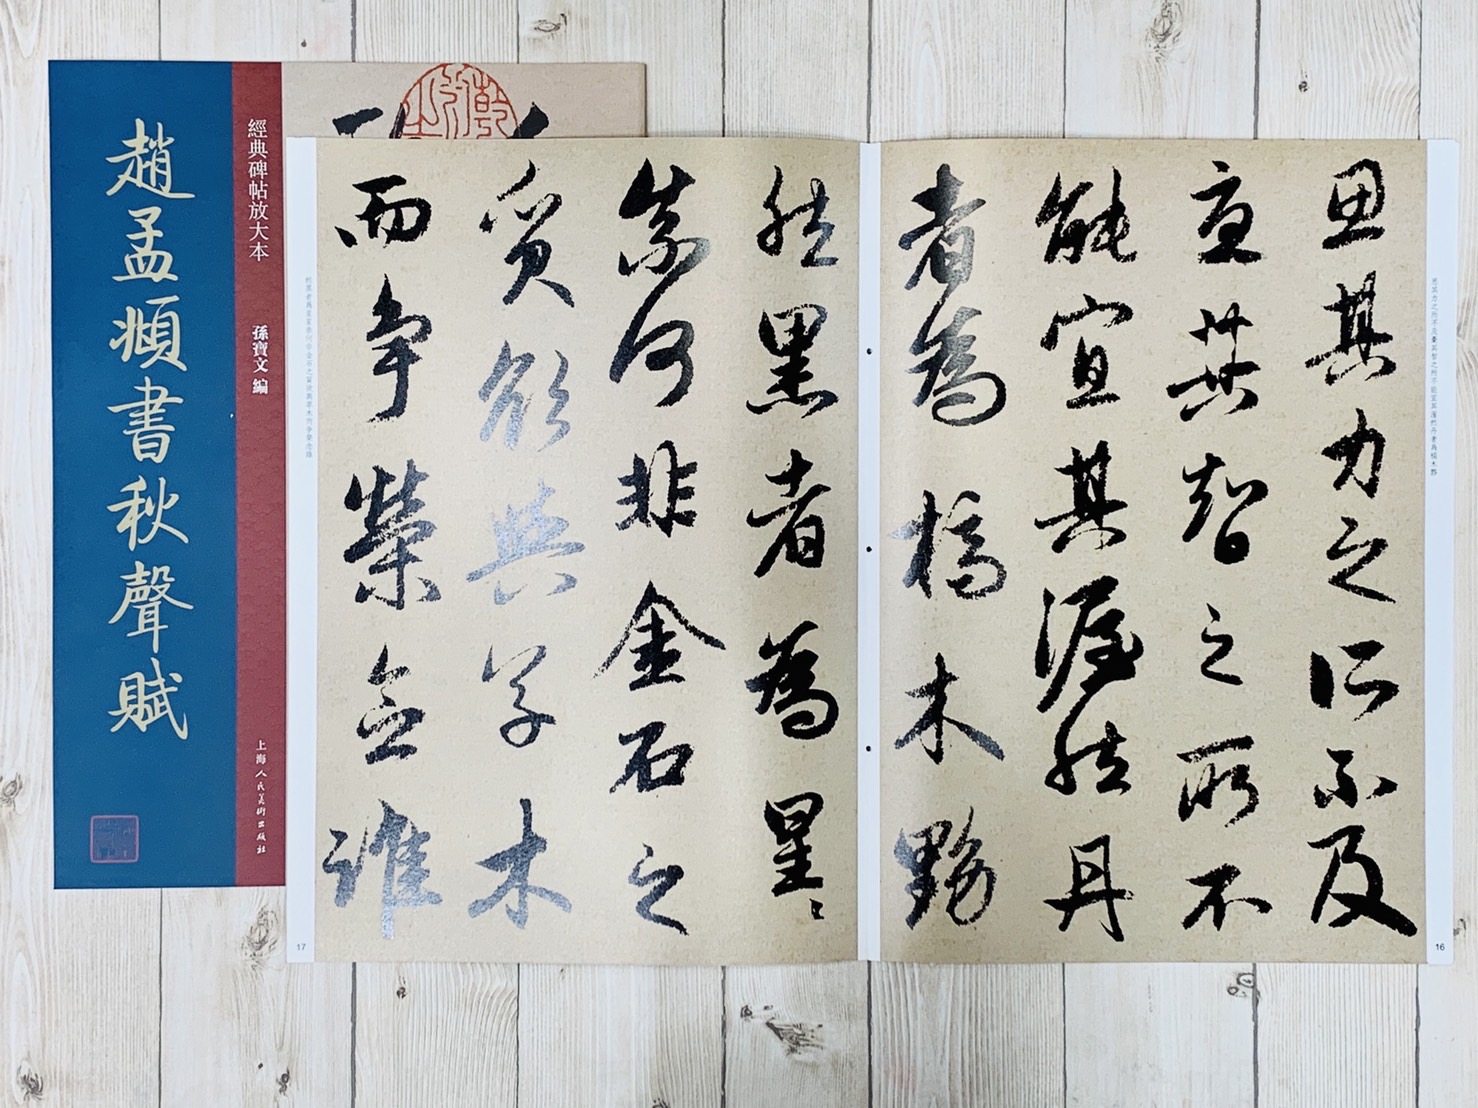 趙孟頫書秋聲賦
經典碑帖放大本
孫寶文 編
上海人民美術出版社
思其力之所不及憂其智之所不能宜其渥然丹者爲槁木黟
思其力之所不及
憂其智之所不
能宜其渥然丹
者為槁木黟
16
然黑者為星〻
奈何非金石之
質欲與草木
而爭榮念誰
然黑者爲星星奈何非金石之質欲與草木而爭榮念誰
17